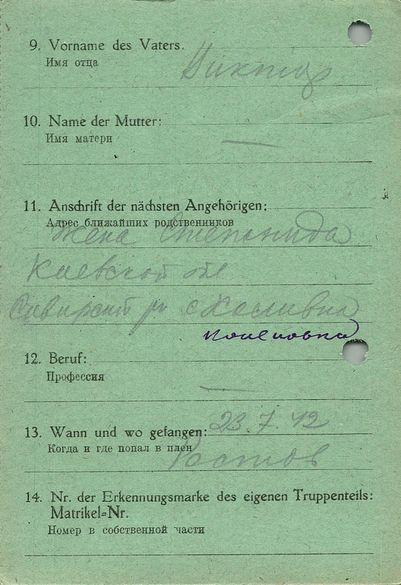 9. Vorname des Vaters.
Имя отца
Виктор
10. Name der Mutter:
Имя матери
—
11. Anschrift der nächsten Angehörigen:
Адрес ближайших родственников
жена Степонида
Киевской обл
Сквирский р с
12. Beruf:
Профессия
—
13. Wann und wo gefangen: 23.7.42
Когда и где попал в плен
Ростов
14. Nr. der Erkennungsmarke des eigenen Truppenteils:
Matrikel=Nr.
Номер в собственной части